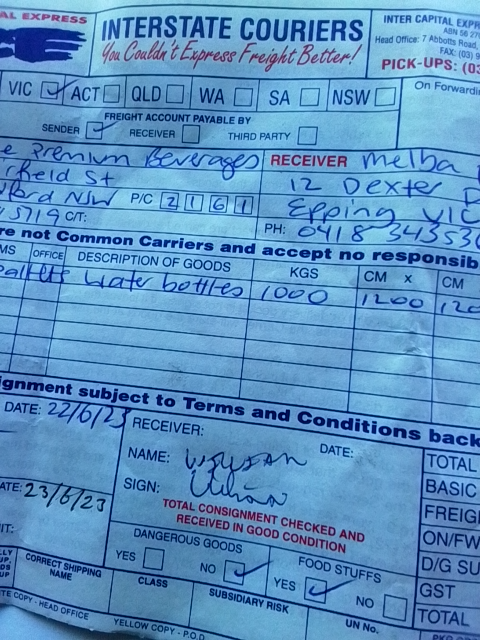 AL EXPRESS
INTERSTATE COURIERS
You Couldn't Express Freight Better!
INTER CAPITAL EXPR
ABN 56 27
Head Office: 7 Abbotts Road,
FAX: (03) 9
PICK-UPS: (03
VIC ACT QLD WA SA NSW
On Forwardi
FREIGHT ACCOUNT PAYABLE BY
SENDER RECEIVER THIRD PARTY
e Premium Beverages
rfield St
NSW P/C 2161
5719 C/T:
RECEIVER Melba
12 Dexter D
Epping VIC
PH: 0418 343536
re not Common Carriers and accept no responsib
MS OFFICE DESCRIPTION OF GOODS KGS CM X CM
pallets water bottles 1000 1200 120
ignment subject to Terms and Conditions back
DATE: 22/6/23
ATE: 23/6/23
IT:
RECEIVER:
NAME: DATE:
SIGN:
TOTAL CONSIGNMENT CHECKED AND
RECEIVED IN GOOD CONDITION
DANGEROUS GOODS FOOD STUFFS
YES NO YES NO
TOTAL
BASIC
FREIG
ON/FW
D/G SU
GST
TOTAL
CORRECT SHIPPING
NAME
CLASS
SUBSIDIARY RISK
UN No.
TE COPY - HEAD OFFICE YELLOW COPY - P.O.D